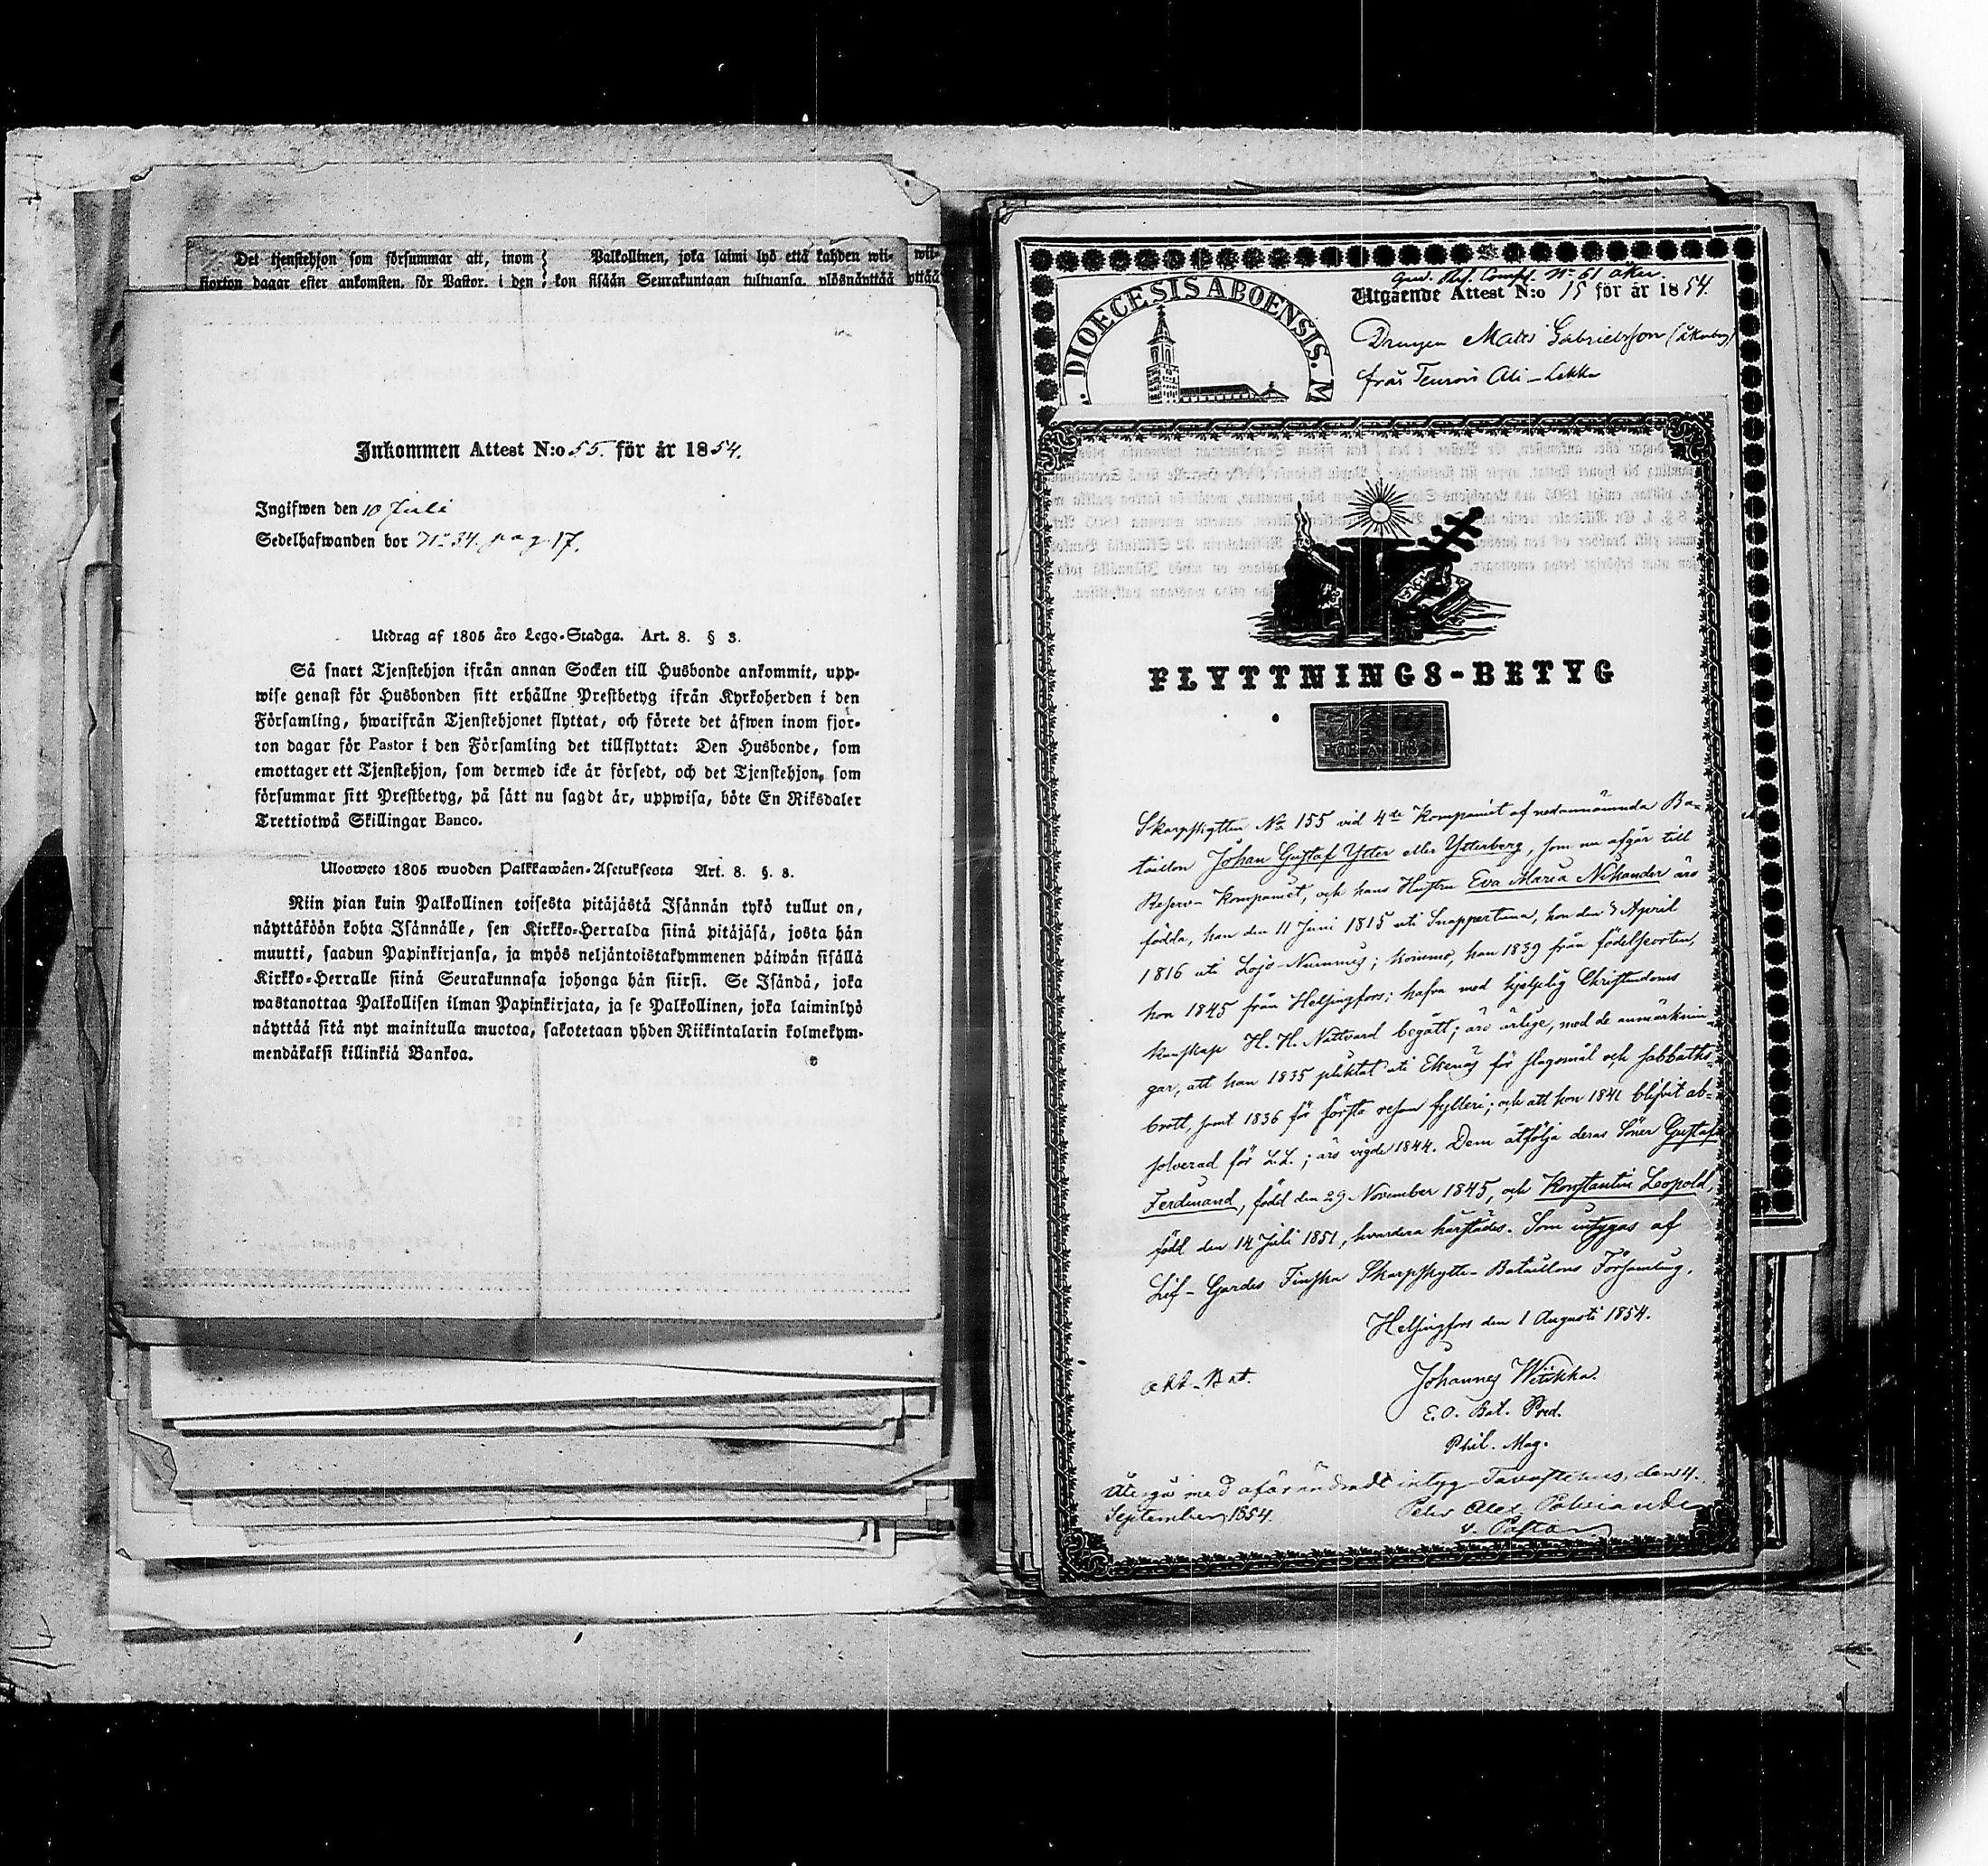 Det tjenstehjon som försummar att, inom
fjorton dagar efter ankomsten, för Pastor, i den
Palkollinen, joka laimi lyö että kahden wii-
kon sisään Seurakuntaan tultuansa, ylösnäyttää
wii-
yttää
Inkommen Attest N:o 55. för år 1854.
Ingifwen den 10 Juli
Sedelhafwanden bor No 34. pag. 17.
Utdrag af 1805 års Lego-Stadga. Art. 8. § 3.
Så snart Tjenstehjon ifrån annan Socken till Husbonde ankommit, upp-
wise genast för Husbonden sitt erhållne Prestbetyg ifrån Kyrkoherden i den
Församling, hwarifrån Tjenstehjonet flyttat, och förete det äfwen inom fjor-
ton dagar för Pastor i den Församling det tillflyttat: Den Husbonde, som
emottager ett Tjenstehjon, som dermed icke är försedt, och det Tjenstehjon, som
försummar sitt Prestbetyg, på sätt nu sagdt är, uppwisa, böte En Riksdaler
Trettiotwå Skillingar Banco.
Ulosweto 1805 wuoden Palkkawäen-Asetuksesta Art. 8. §. 3.
Niin pian kuin Palkollinen toisesta pitäjästä Isännän tykö tullut on,
näyttäköön kohta Isännälle, sen Kirkko-Herralda siinä pitäjäsä, josta hän
muutti, saadun Papinkirjansa, ja myös neljäntoistakymmenen päiwän sisällä
Kirkko-Herralle siinä Seurakunnasa johonga hän siirsi. Se Isändä, joka
wastanottaa Palkollisen ilman Papinkirjata, ja se Palkollinen, joka laiminlyö
näyttää sitä nyt mainitulla muotoa, sakotetaan yhden Riikintalarin kolmekym-
mendäkaksi killinkiä Bankoa.
DIOECESIS ABOENSIS. M
No 61
Utgående Attest N:o 15 för år 1854.
Drengen Matts Gabrielsson
från Ali-Lekko
FLYTTNINGS-BETYG
FÖR ÅR 18
Skarpskytten No 155 vid 4de Kompaniet af nedannämnda Ba-
taillon Johan Gustaf Ytter eller Ytterberg, som nu afgår till
Reserv-Kompaniet, och hans Hustru Eva Maria Nikander äro
födda, han den 11 Juni 1815 uti Snappertuna, hon den 3 April
1816 uti Lojo-Nummis; komne, han 1839 från födelseorten,
hon 1845 från Helsingfors; hafva med hjelplig Christendoms
kunskap H. H. Nattvard begått; äro ärlige, med de anmärknin-
gar, att han 1835 pliktat uti Ekenäs för slagsmål och sabbaths-
brott, samt 1836 för första resan fylleri; och att hon 1841 blifvit ab-
solverad för L.L.; äro vigde 1844. Dem åtfölja deras Söner Gustaf
Ferdinand, född den 29 November 1845, och Konstantin Leopold,
född den 14 Juli 1851, hvardera härstädes. Som intygas af
Lif-Gardes Finska Skarpskytte-Bataillons Församling.
Helsingfors den 1 Augusti 1854.
Johannes Witikka.
E.O. Bat. Pred.
Phil. Mag.
Återgår med oförändradt intyg Tavastehus, den 4.
September 1854.
v. Pastor